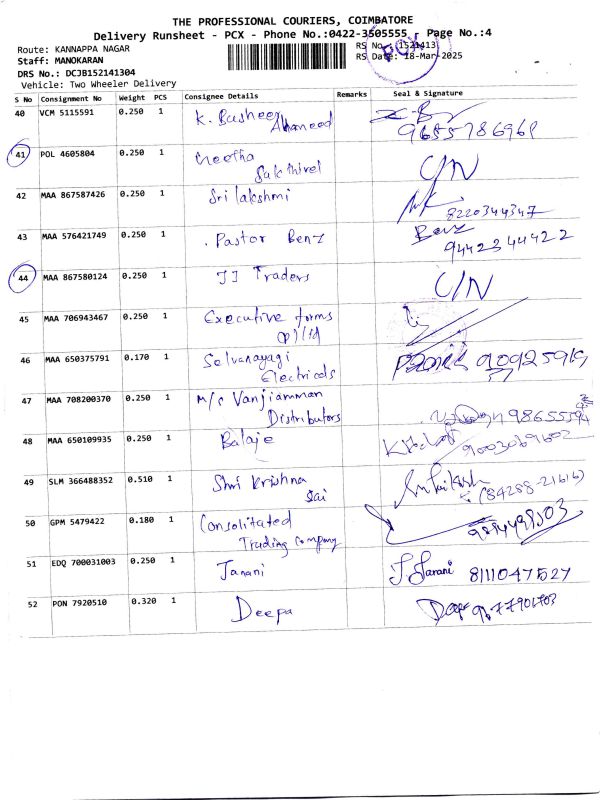 THE PROFESSIONAL COURIERS, COIMBATORE
Delivery Runsheet - PCX - Phone No.:0422-3505555 , Page No.:4
Route: KANNAPPA NAGAR RS No.: 1521413
Staff: MANOKARAN RS Date: 18-Mar-2025
DRS No.: DCJB152141304
Vehicle: Two Wheeler Delivery
PCX
S No Consignment No Weight PCS Consignee Details Remarks Seal & Signature
40 VCM 5115591 0.250 1 K. Basheer
Ahameed
41 POL 4605804 0.250 1 Geetha C/N
Sakthivel
42 MAA 867587426 0.250 1 Sri lakshmi 8220344347
43 MAA 576421749 0.250 1 . Pastor Benz Benz
9442344422
44 MAA 867580124 0.250 1 JJ Traders C/N
45 MAA 706943467 0.250 1 Executive forms
46 MAA 650375791 0.170 1 Selvanayagi
Electricals
47 MAA 708200370 0.250 1 M/s Vanjiamman
Distributors
48 MAA 650109935 0.250 1 Balaje 9003069602
49 SLM 366488352 0.510 1 Shri Krishna (84288-21616)
Sai
50 GPM 5479422 0.180 1 Consolitated
Trading Company
51 EDQ 700031003 0.250 1 Janani J Janani 8111047527
52 PON 7920510 0.320 1 Deepa